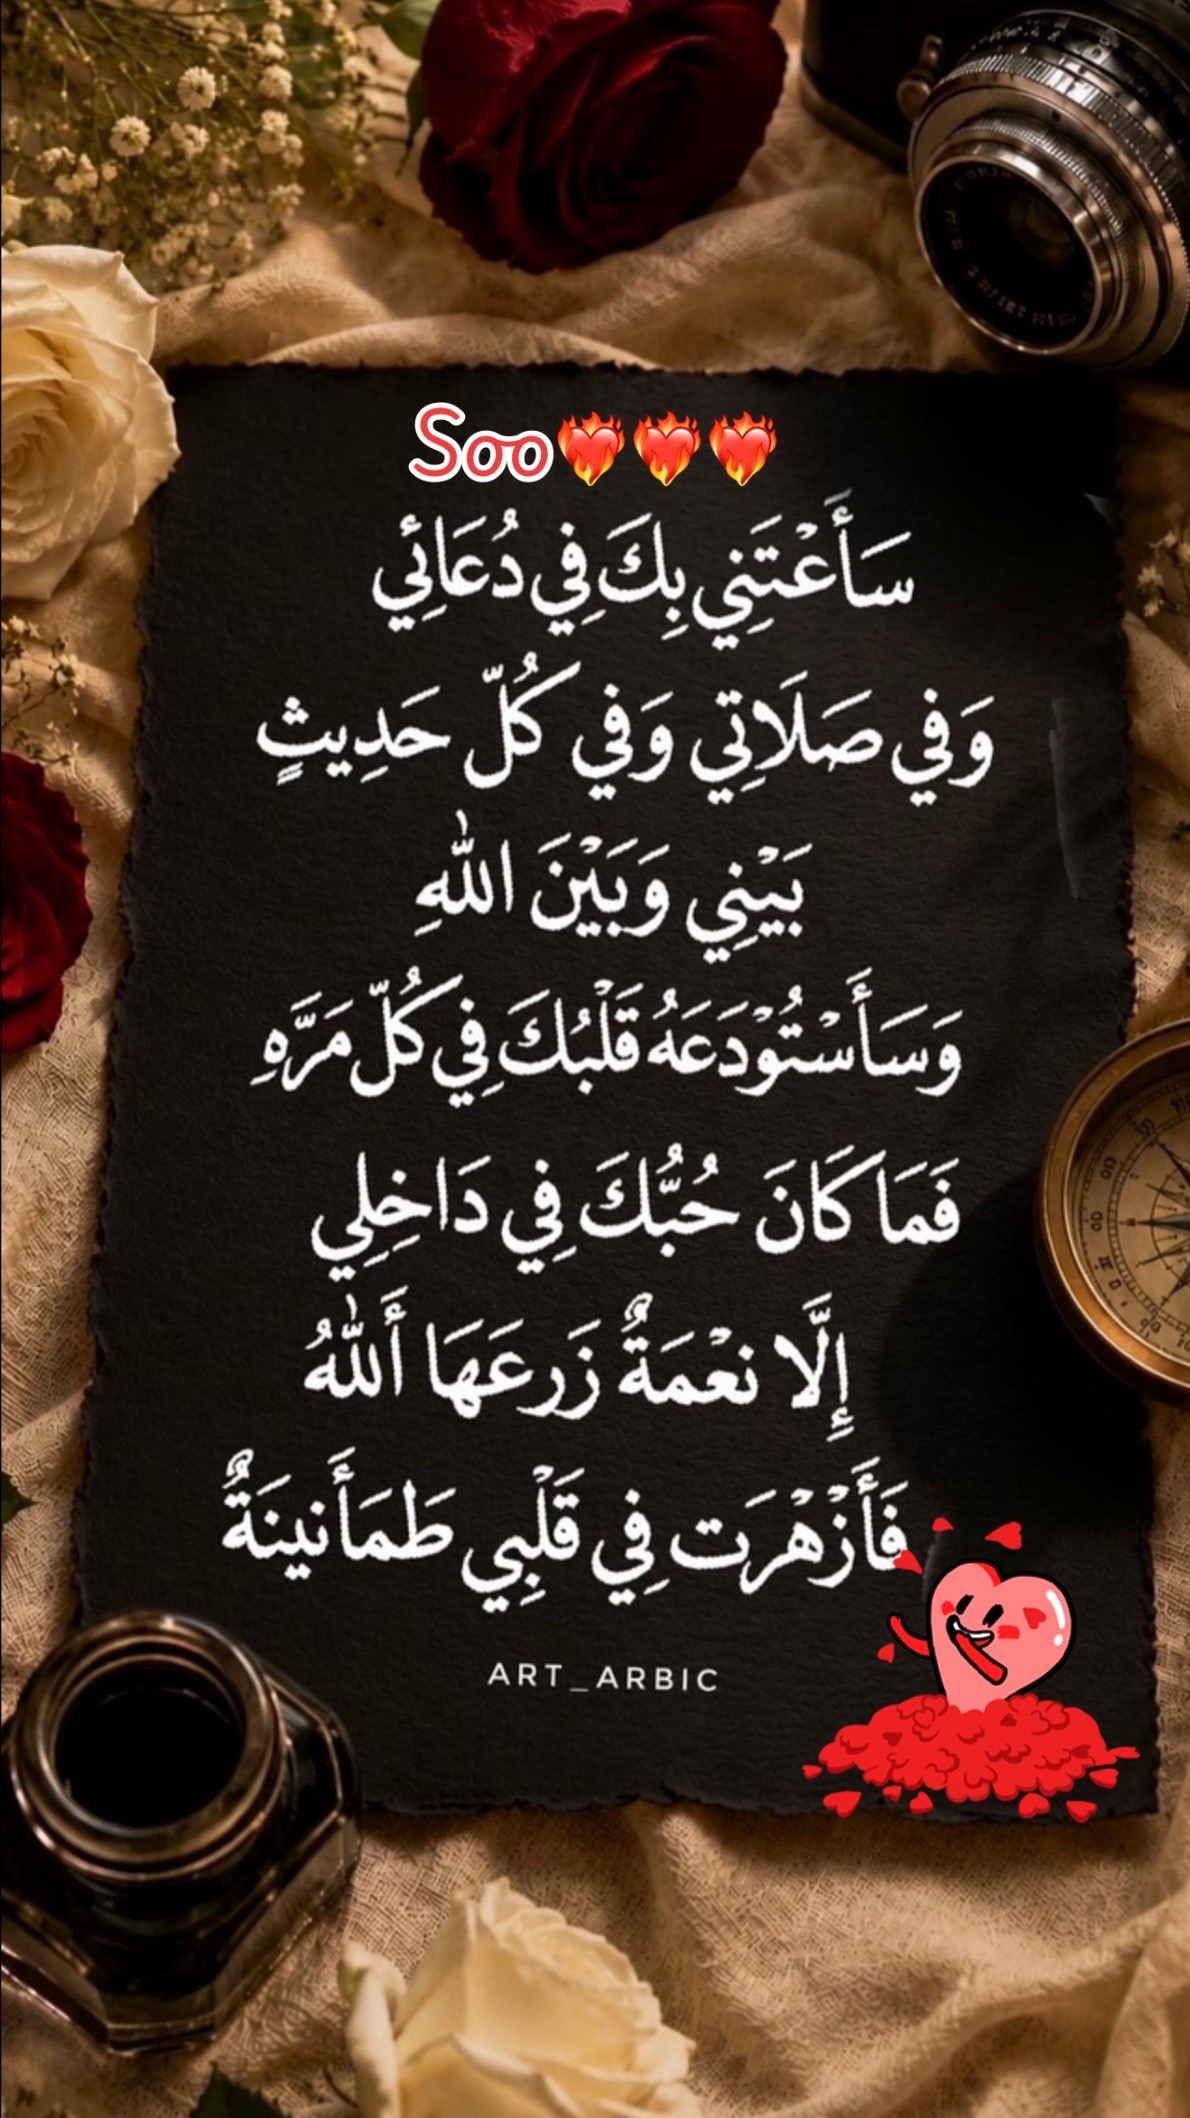 Soo❤️‍🔥❤️‍🔥❤️‍🔥
سَأَعْتَنِي بِكَ فِي دُعَائِي
وَفِي صَلَاتِي وَفِي كُلّ حَدِيثٍ
بَيْنِي وَبَيْنَ اللهِ
وَسَأَسْتُوْدَعَهُ قَلْبُكَ فِي كُلّ مَرَّهِ
فَمَا كَانَ حُبُّكَ فِي دَاخِلِي
إِلَّا نعْمَةٌ زَرعَهَا أَللهُ
فَأَزْهْرَت فِي قَلْبِي طَمَأَنينَةٌ
ART_ARBIC